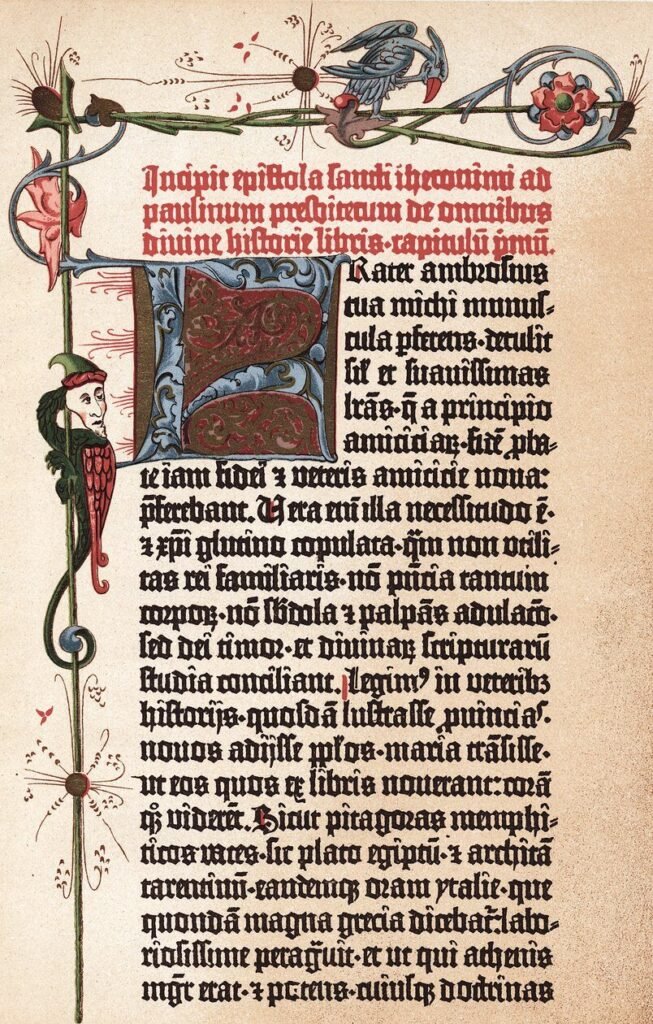 Incipit epistola sancti iheronimi ad
paulinum presbiterum de omnibus
divine historie libris·capitulū p̄mū.
FRater ambrosius
tua michi munus-
cula ꝑferens·detulit
sil' et suauissimas
lr̄as·q̄ a principio
amiciciaꝝ·fidē ꝓba-
te iam fidei ⁊ veteris amicicie noua:
p̄ferebant. Vera enī illa necessitudo ē·
⁊ xp̄i glutino copulata·qm̄ non vtili-
tas rei familiaris·nō pn̄cia tantum
corpoꝝ·nō sb'dola ⁊ palpās adulacō·
sed dei timor·et diuinaꝝ scripturarū
studia conciliant. Legimꝰ in veteribꝫ
historijs·quosdā lustrasse ꝓuincias·
nouos adijsse pp̄los·maria trāsisse·
ut eos quos ex libris nouerant: corā
qꝫ viderēt. Sicut pitagoras memphi-
ticos vates·sic plato egiptū·⁊ architā
tarentinū·eandemqꝫ oram ytalie·que
quondā magna grecia dicebat᷑: labo-
riosissime peragᷓuit·et ut qui athenis
mgr̄ erat·⁊ potens·cuiusqꝫ doctrinas